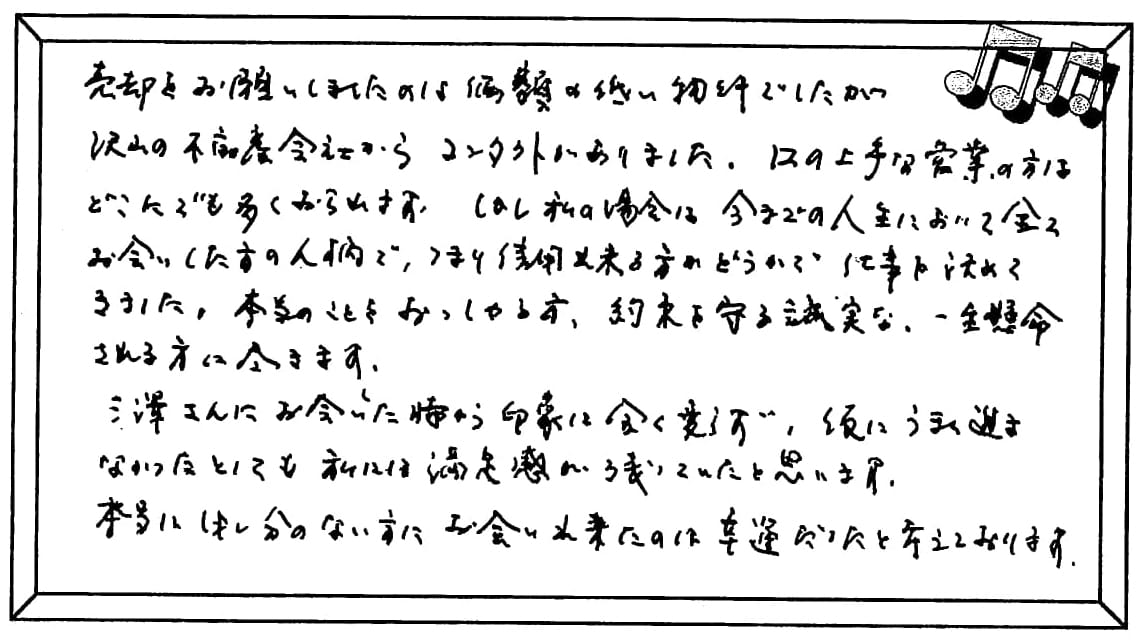 売却をお願いしましたのは価額の低い物件でしたが
沢山の不動産会社から コンタクトがありました。口の上手な営業の方は
どこにでも多くおられます。しかし私の場合は今までの人生において全て
お会いした方の人柄で、つまり信用出来る方かどうかで仕事を決めて
きました。本当のことをおっしゃる方、約束を守る誠実な、一生懸命
される方に尽きます。
三澤さんにお会いした時から印象は全く変らず、仮にうまく進ま
なかったとしても私には満足感が残っていたと思います。
本当に申し分のない方にお会い出来たのは幸運だったと考えております。